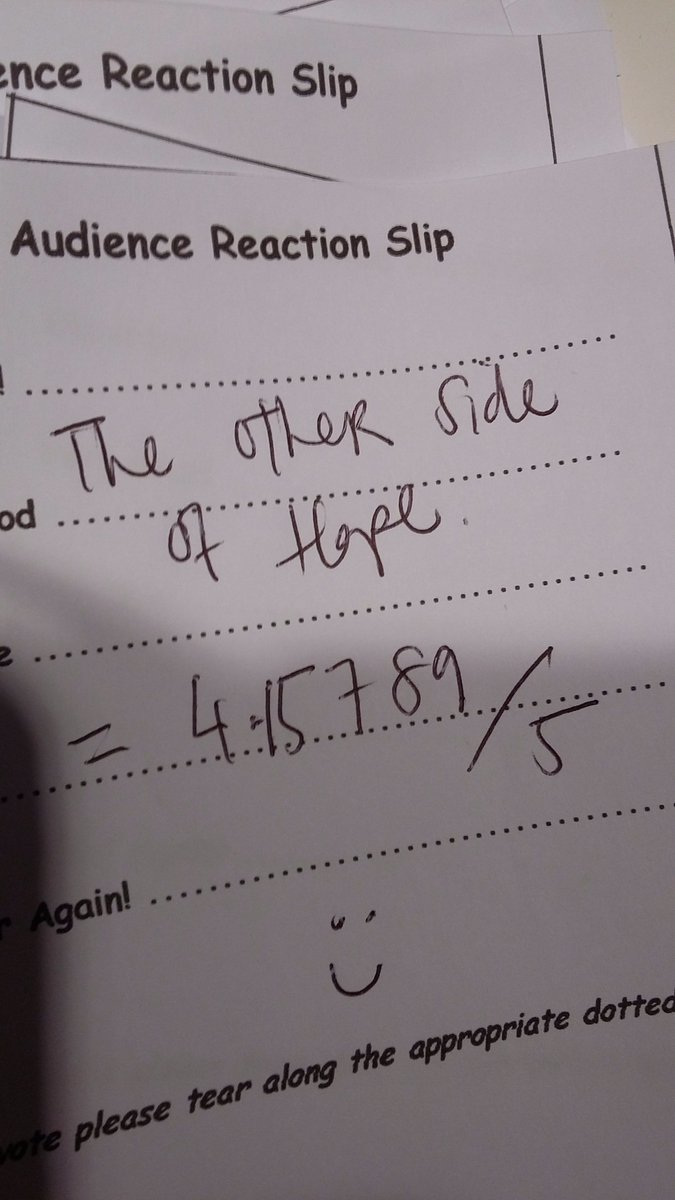 ence Reaction Slip
Audience Reaction Slip
! ........................................
The other side
od ........................................
of Hope.
e ........................................
= 4.15789/5
........................................
r Again! ........................................
vote please tear along the appropriate dotted